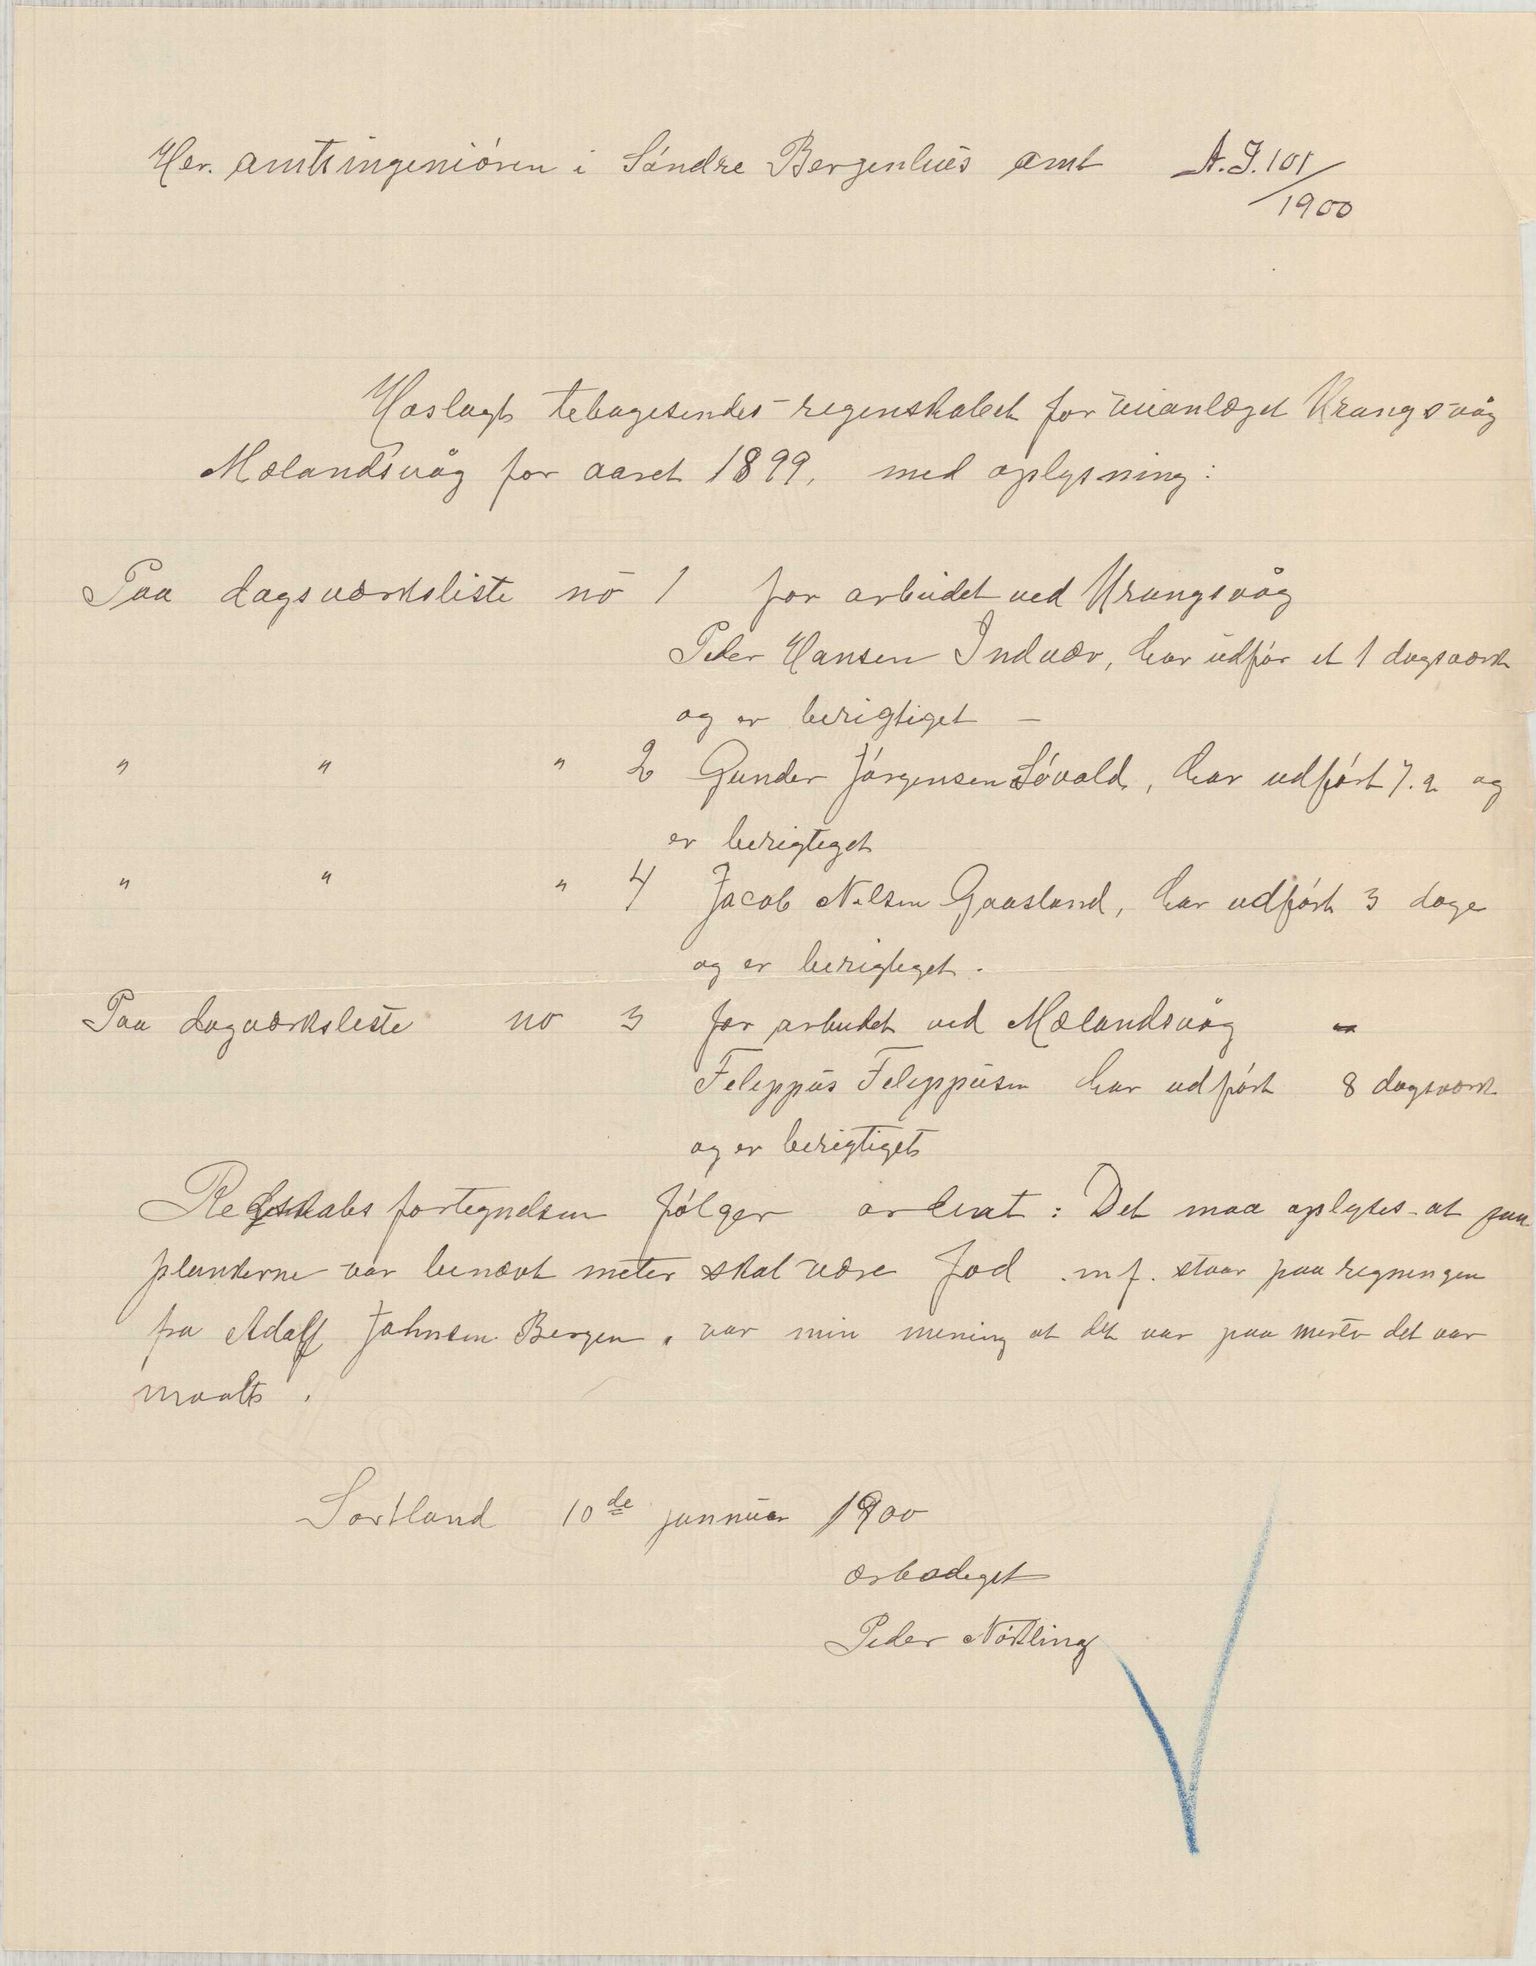 Her. amtsingeniören i Söndre Bergenhus amt A.I. 101/1900
Hoslagt tebagesendes regenskabet for veianlæget Krangsvåg
Mælandsvåg for aaret 1899, med oplysning:
Paa dagsværksliste no 1 for arbeidet ved Krangsvåg
Peder Hansen Indvær, har udför et 1 dagsværk
og er berigtiget —
" " " 2 Gunder Jörgensen Lövald, har udfört 7.2 og
er berigteget
" " " 4 Jacob Nilsen Gaasland, har udfört 3 dage
og er berigteget.
Paa dagværksleste no 3 for arbeidet ved Mælandsvåg
Feleppus Feleppusen har udfört 8 dagsværk
og er berigtiget
Redskabs fortegnelsen fölger : Det maa oplyses at paa
plankerne var benævt meter skal være Fod .m f. staar paa regningen
fra Adolf Johnsen Bergen, var min mening at det var paa meter det var
maalt.
Sortland 10de jannuar 1900
ærbødeget
Peder Nötling